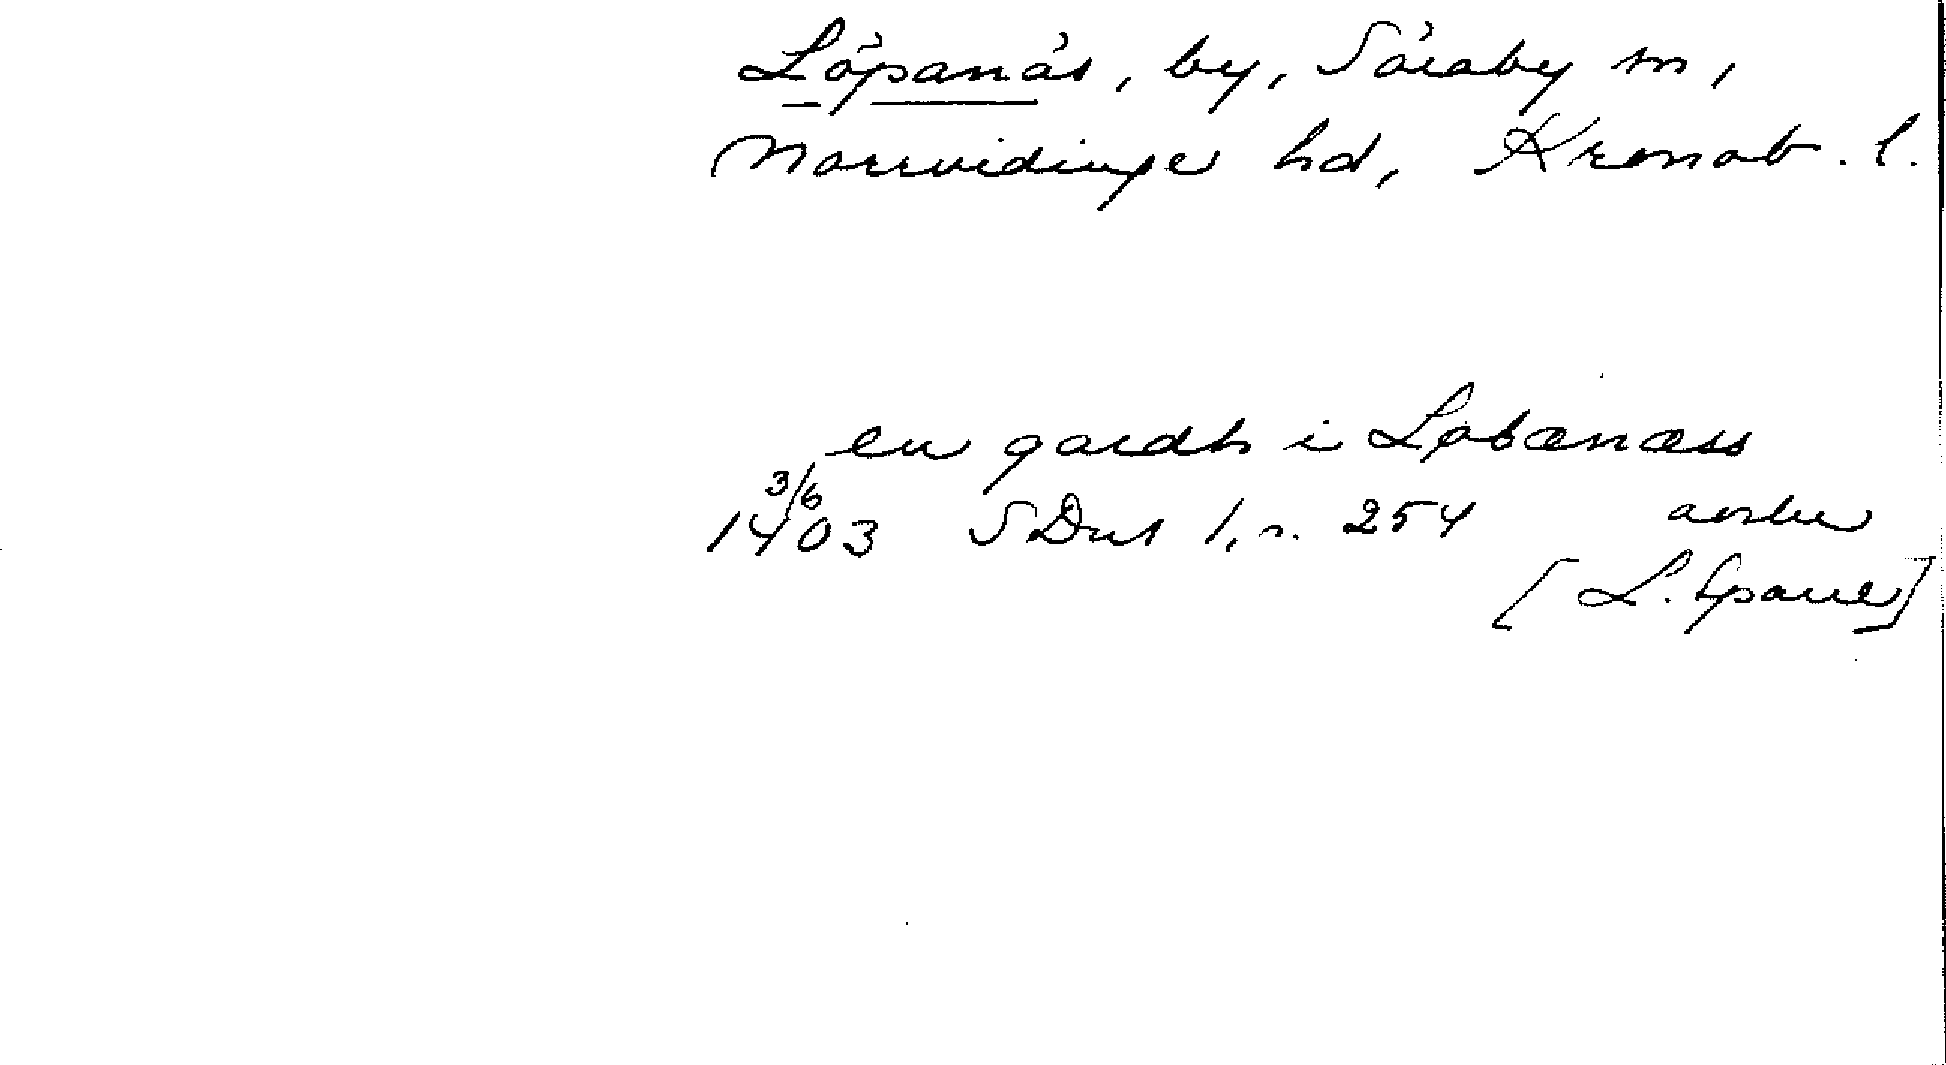 Löpanäs, by, Söraby sn,
Norrvidinge hd, Kronob. l.
en gardh i Løbænæss
3/6 1403 SDns 1, s. 254 avskr
[L. Gpane]